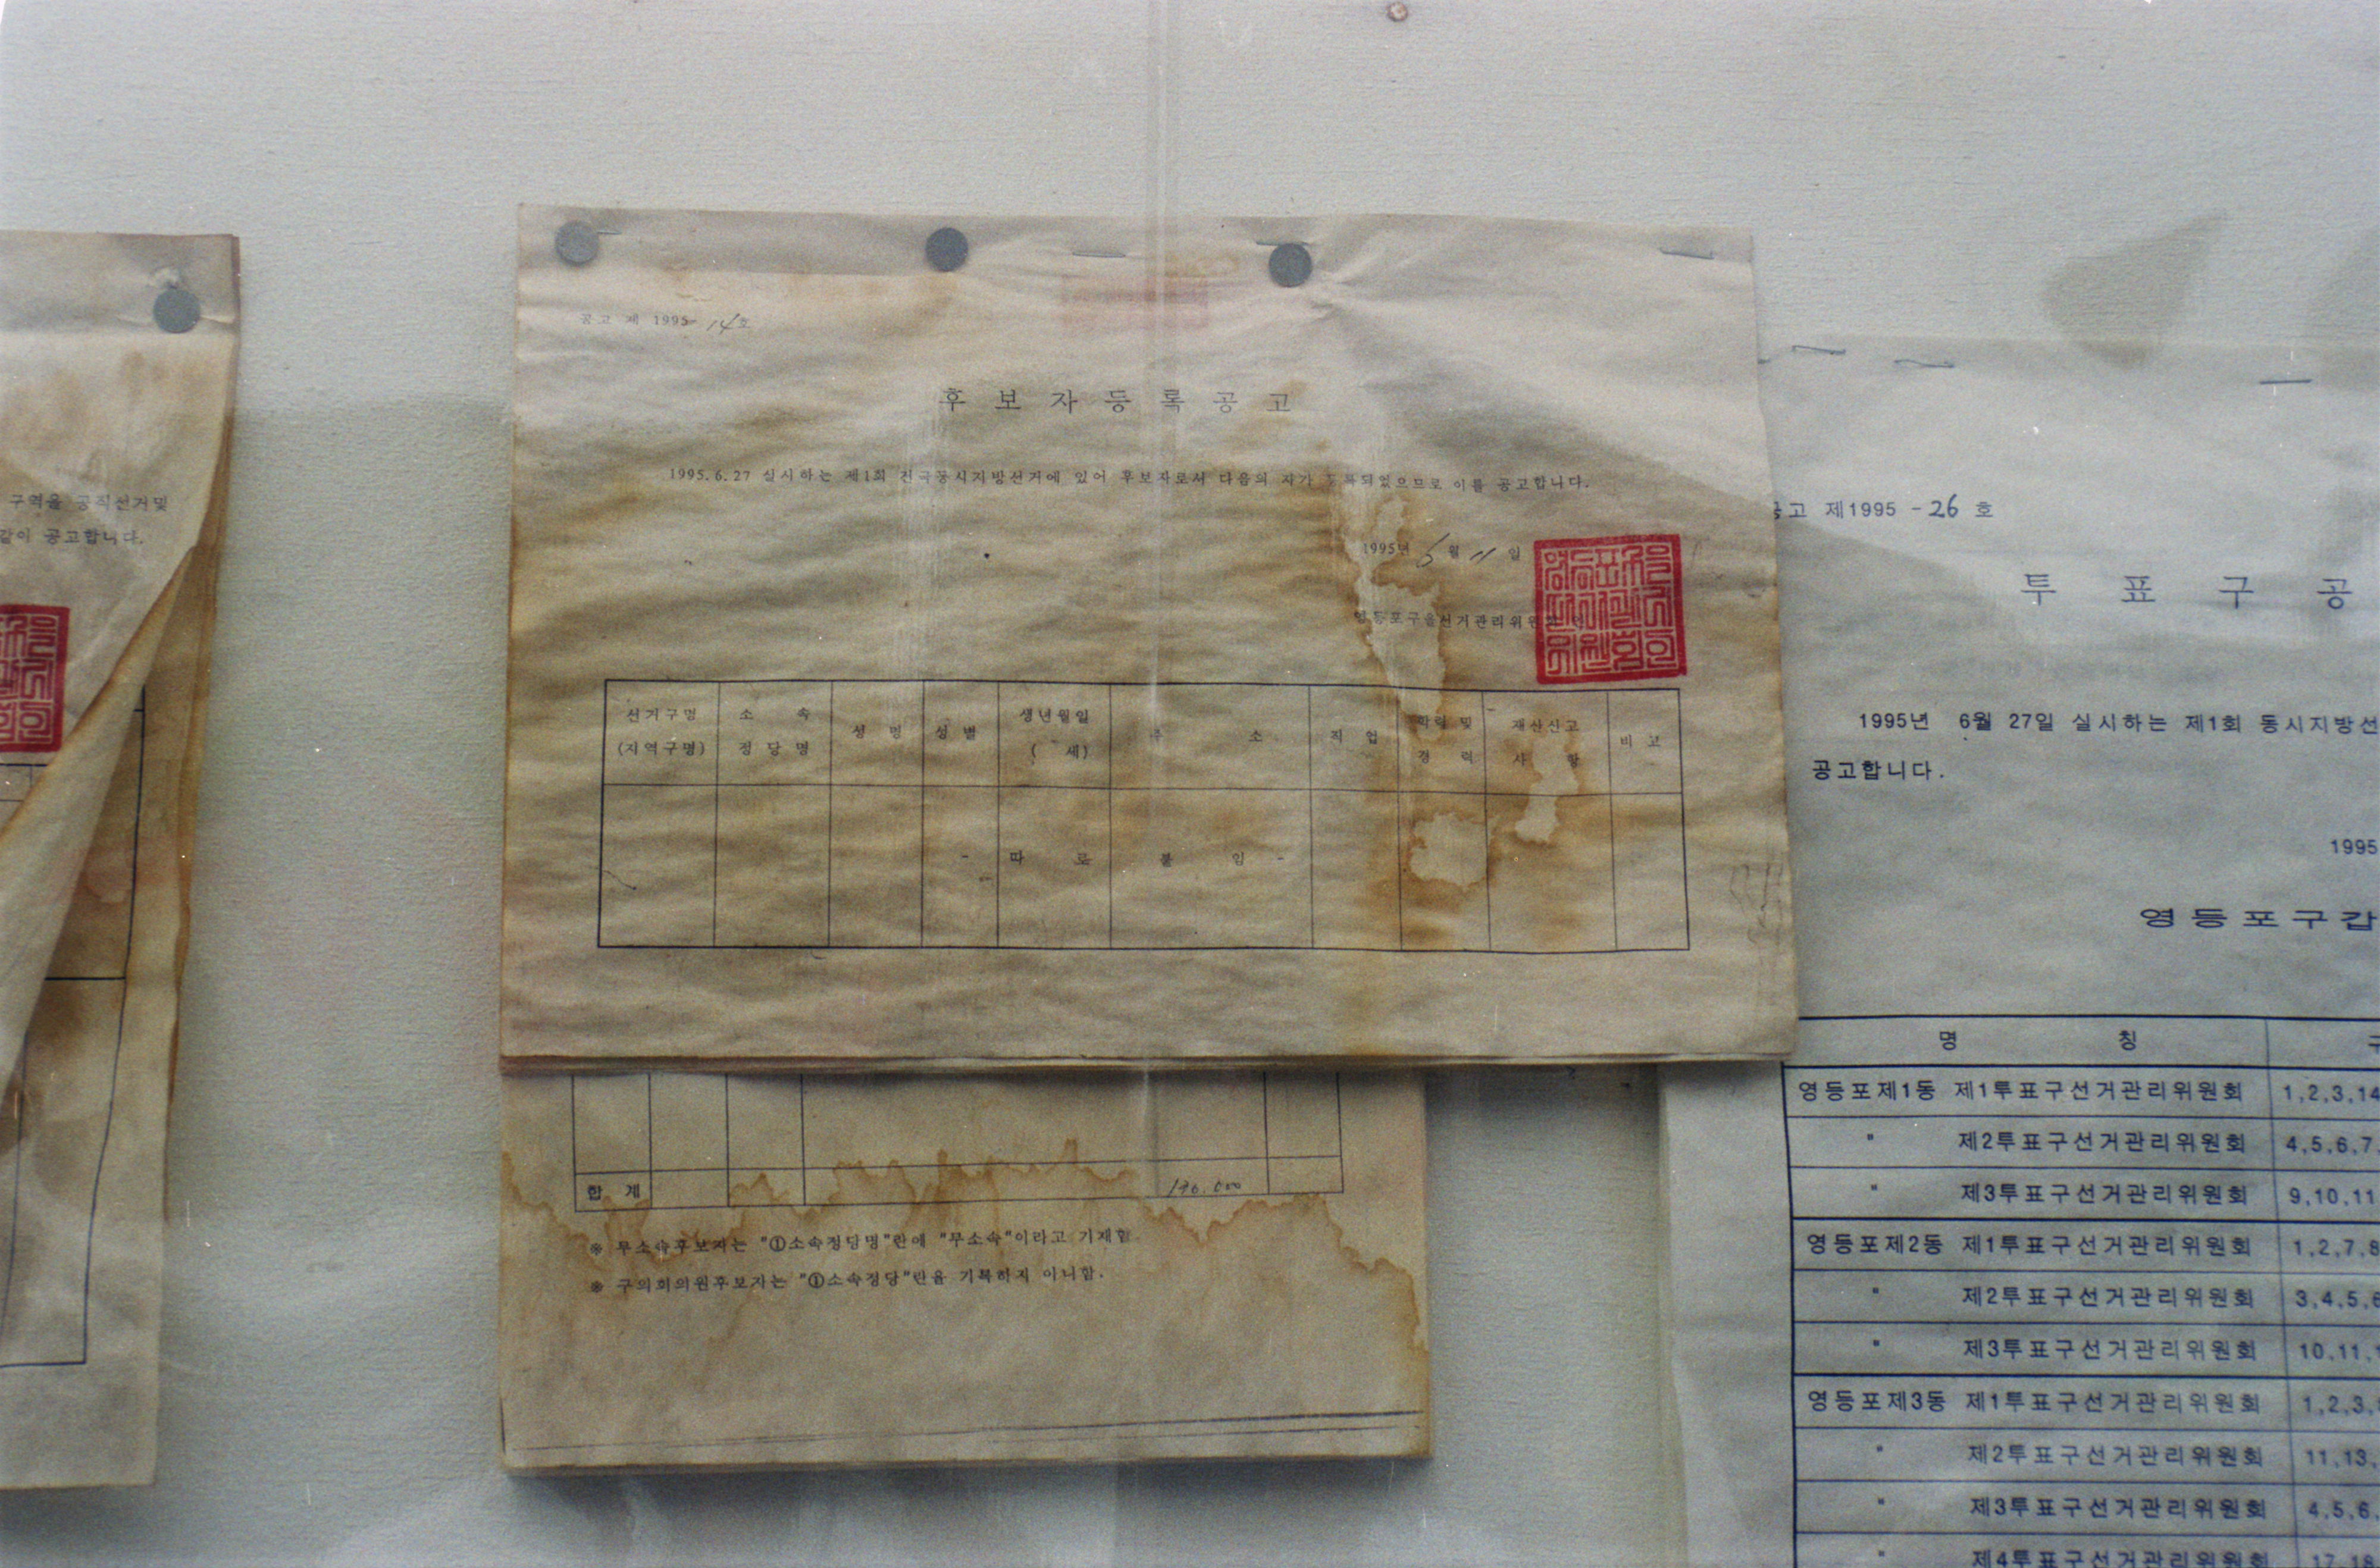 구역을 공직선거및
같이 공고합니다.
공고 제 1995-14호
후보자등록공고
1995.6.27 실시하는 제1회 전국동시지방선거에 있어 후보자로서 다음의 자가 등록되었으므로 이를 공고합니다.
1995년 6월 11일
영등포구을선거관리위원회
선거구명 (지역구명)
소속 정당명
성명
성별
생년월일 ( 세)
주소
직업
학력 및 경력
재산신고 사항
비고
- 따로 붙임 -
합계
※ 무소속후보자는 "①소속정당명"란에 "무소속"이라고 기재함
※ 구의회의원후보자는 "①소속정당"란을 기록하지 아니함.
공고 제1995 -26 호
투표구공
1995년 6월 27일 실시하는 제1회 동시지방선
공고합니다.
1995
영등포구갑
명칭
영등포제1동 제1투표구선거관리위원회 1,2,3,14
" 제2투표구선거관리위원회 4,5,6,7,
" 제3투표구선거관리위원회 9,10,11
영등포제2동 제1투표구선거관리위원회 1,2,7,8
" 제2투표구선거관리위원회 3,4,5,6
" 제3투표구선거관리위원회 10,11,
영등포제3동 제1투표구선거관리위원회 1,2,3,
" 제2투표구선거관리위원회 11,13,
" 제3투표구선거관리위원회 4,5,6,
" 제4투표구선거관리위원회